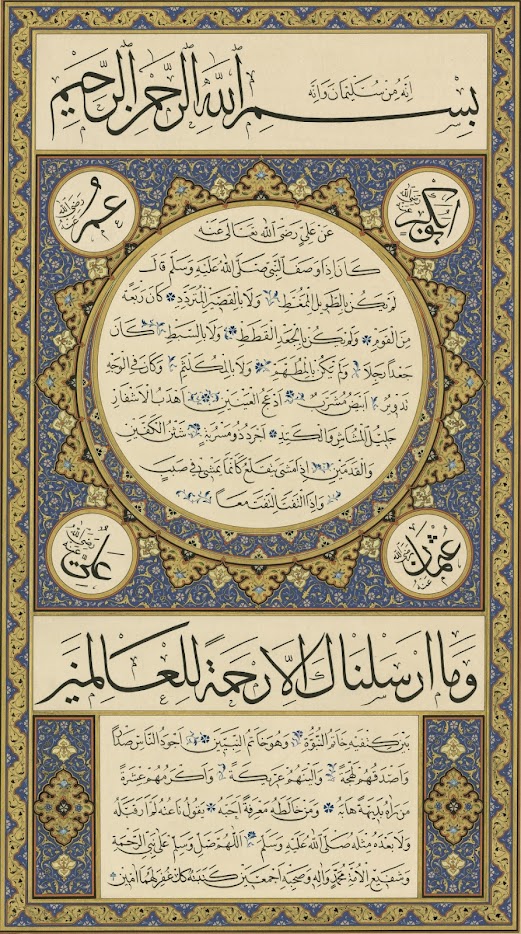 انه من سليمان وانه
بسم الله الرحمن الرحيم
ابوبكر رضي الله عنه
عمر رضي الله عنه
عن علي رضي الله تعالى عنه
كان اذا وصف النبي صلى الله عليه وسلم قال
لم يكن بالطويل الممغط ولا بالقصير المتردد وكان ربعة
من القوم ولم يكن بالجعد القطط ولا بالسبط كان
جعدا رجلا ولم يكن بالمطهم ولا بالمكلثم وكان في الوجه
تدوير ابيض مشرب ادعج العينين اهدب الاشفار
جليل المشاش والكتد اجرد ذو مسربة شثن الكفين
والقدمين اذا مشى يتقلع كانما يمشي في صبب
واذا التفت التفت معا
عثمان رضي الله عنه
علي رضي الله عنه
وما ارسلناك الا رحمة للعالمين
بين كتفيه خاتم النبوة وهو خاتم النبيين اجود الناس صدرا
واصدقهم لهجة والينهم عريكة واكرمهم عشرة
من راه بديهة هابه ومن خالطه معرفة احبه يقول ناعته لم ار قبله
ولا بعده مثله صلى الله عليه وسلم اللهم صل وسلم على نبي الرحمة
وشفيع الامة محمد واله وصحبه اجمعين